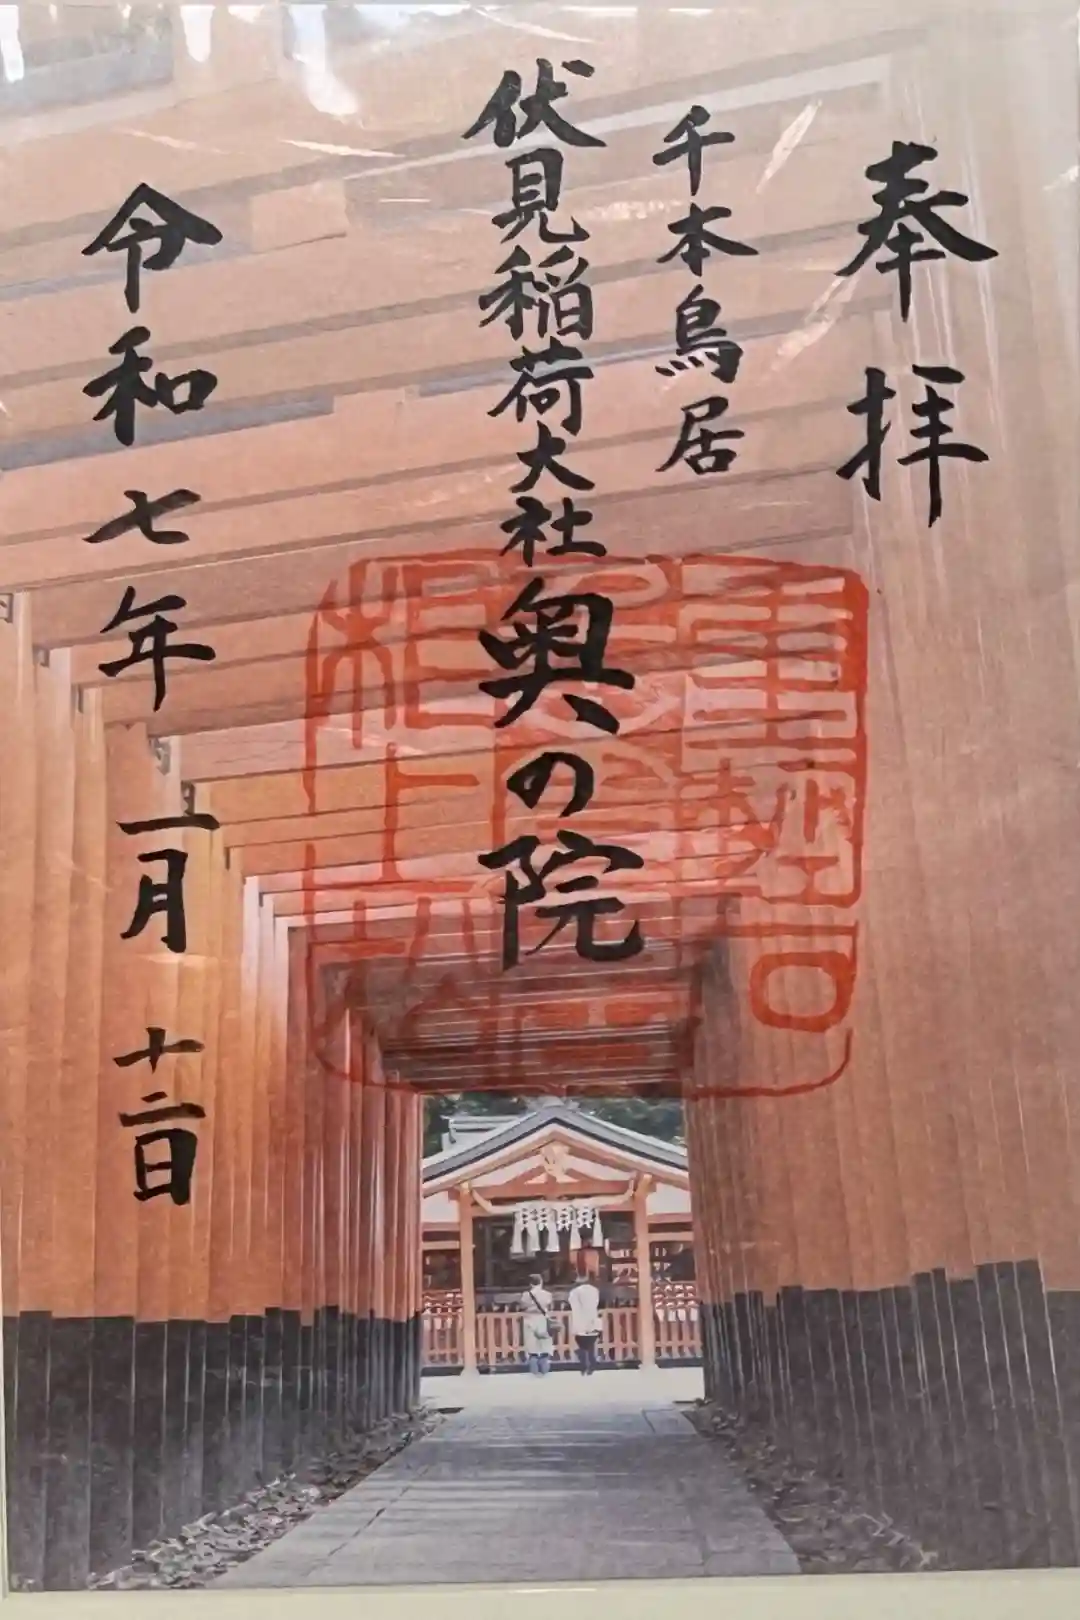 奉拝
千本鳥居
伏見稲荷大社奥の院
令和七年二月十二日